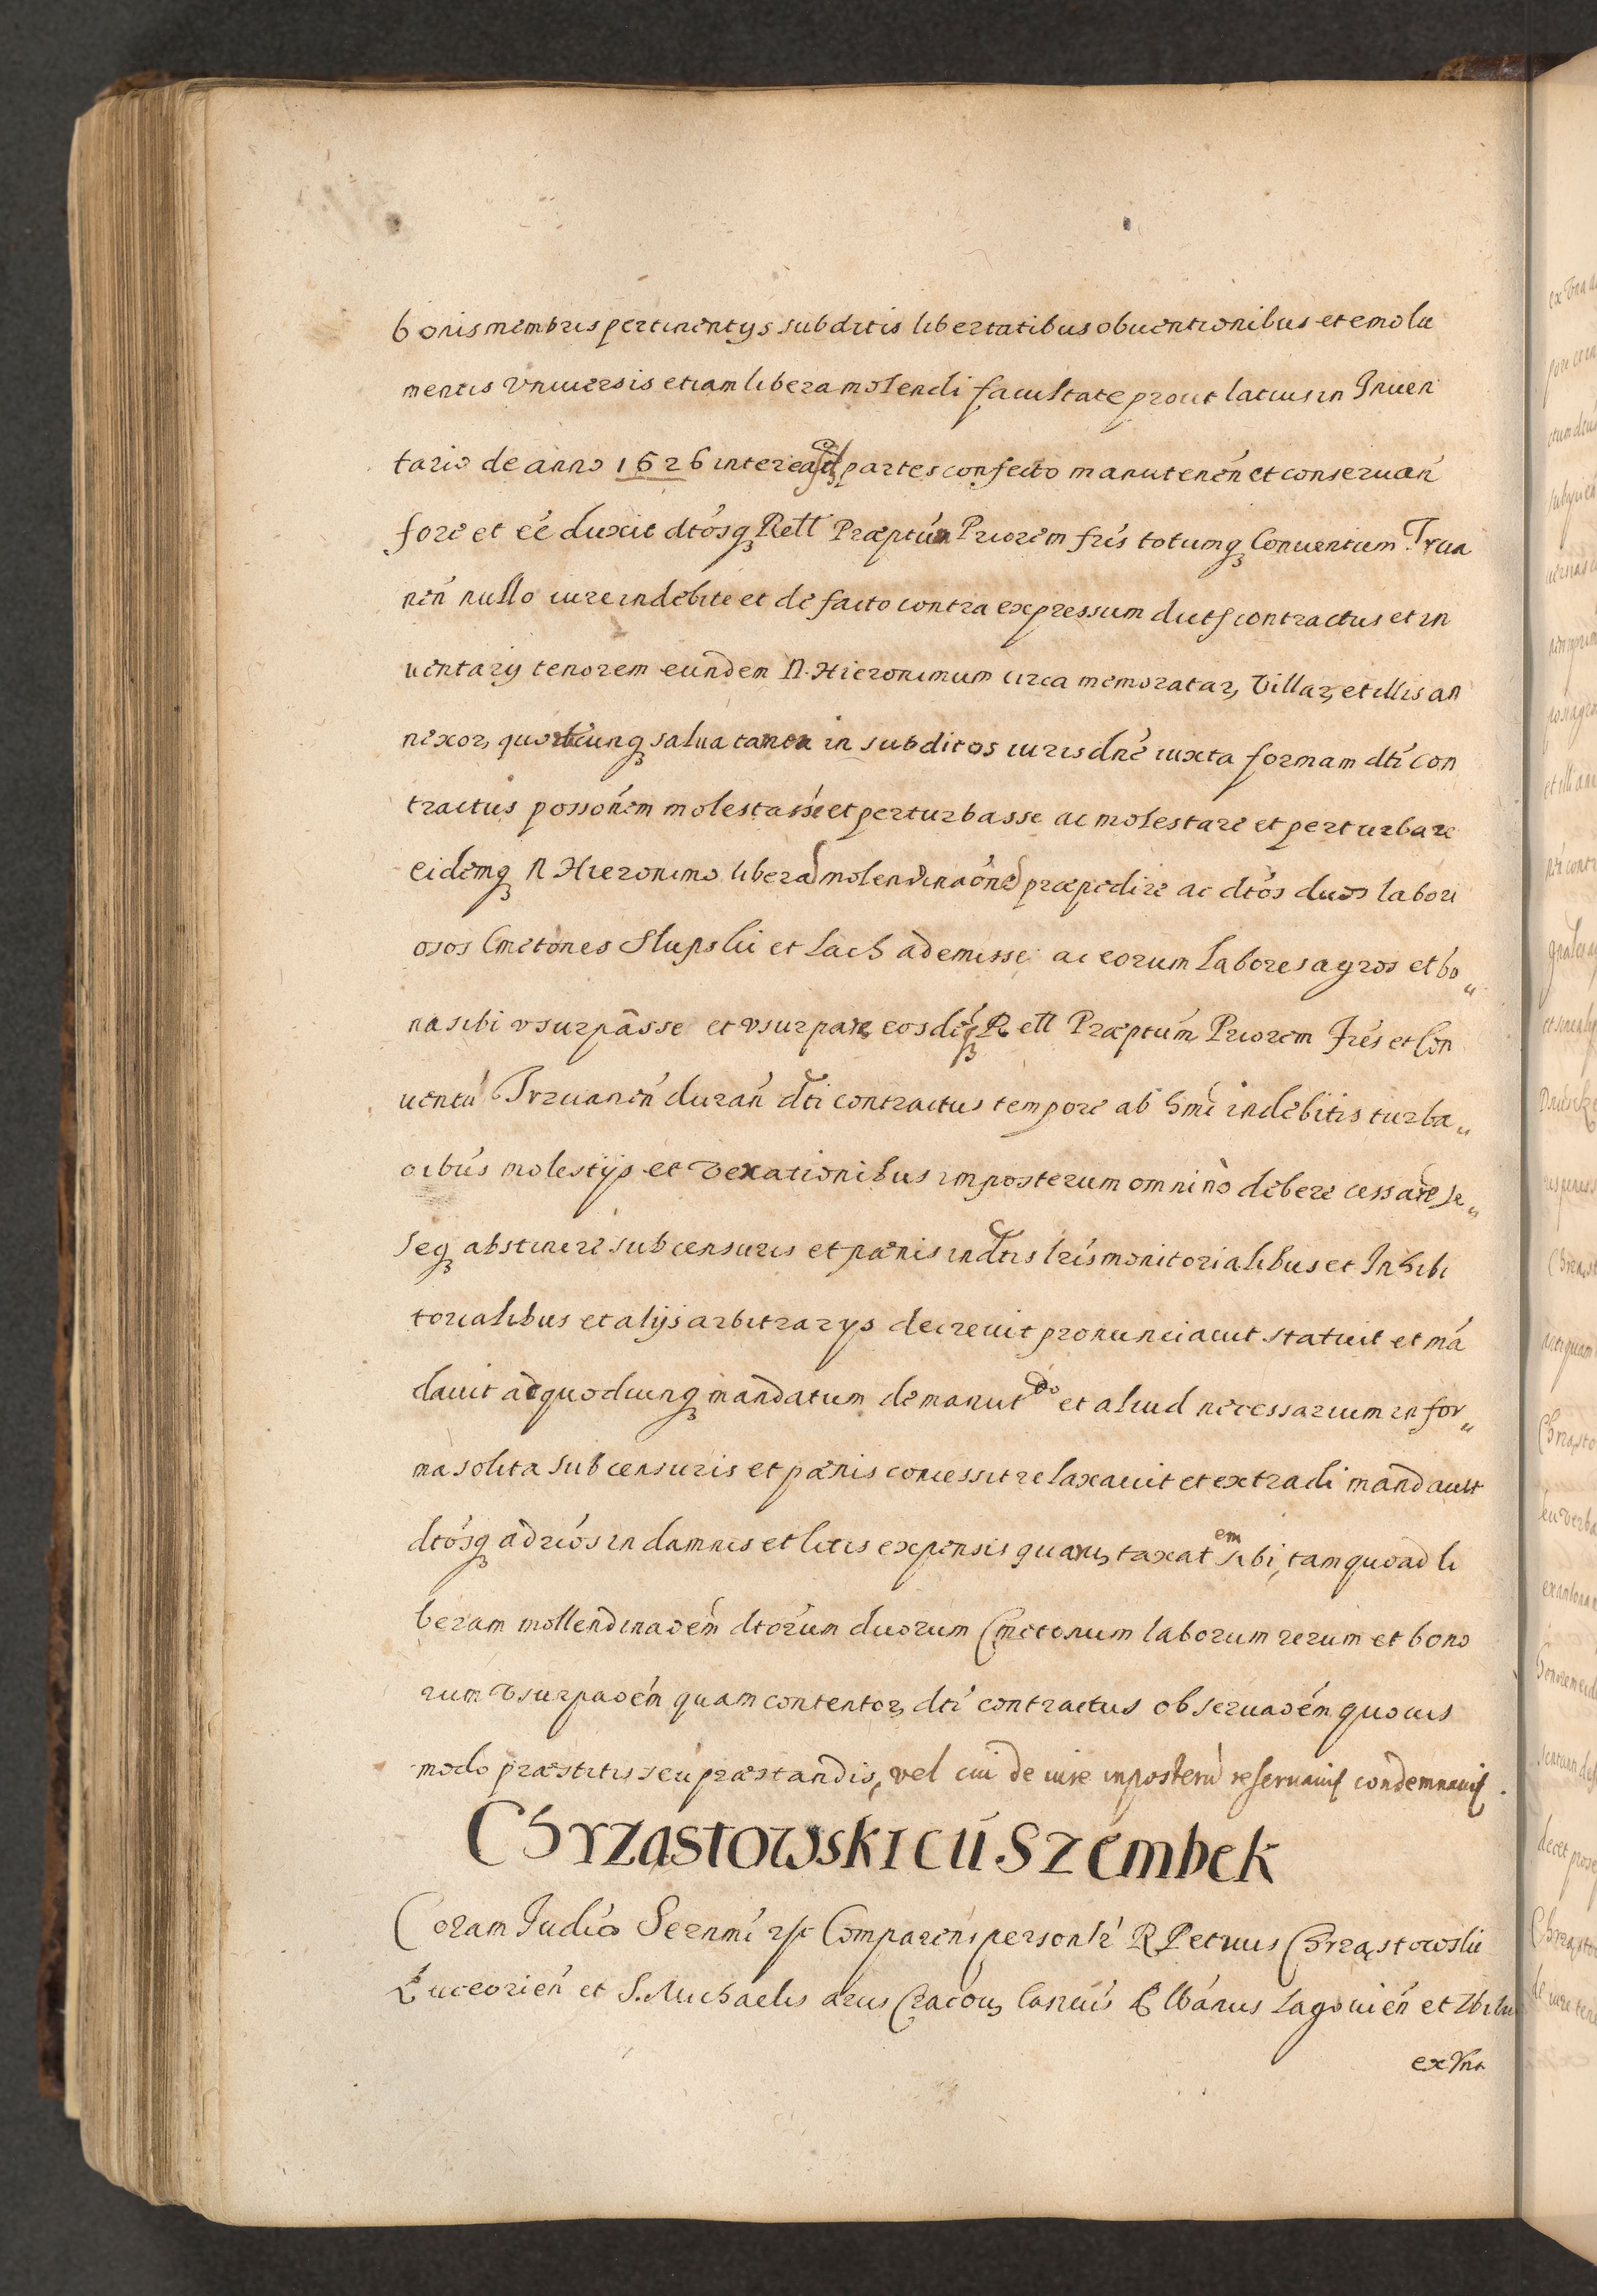 bonis membris pertinentÿs subditis libertatibus obuentionibus et emolu
mentis vniuersis etiam libera molendi facultate prout latius in Inuen
tario de anno 1626 inter easd partes confecto manutenén et conseruań
fore et eé duxit dtósq Rell Præptúm Priorem frés totumq Conuentum Trza
nén nullo iure indebite et de facto contra expressum dicti contractus et in
uentarÿ tenorem eundem N. Hieronimum circa memoratar, villar, et illis an
nexor, quorumcunq salua tamen in subditos iurisdné iuxta formam dti con
tractus possónem molestasse et perturbasse ac molestare et perturbare
eidemq N Hieronimo liberā molendinaóne præpedire ac dtós duos labori
osos Cmetones Slupski et Lach ademisse ac eorum labores agros et bo„
na sibi vsurpâsse et vsurpare, eosdēq Rell Præptúm Priorem Frés et Con
uentú Trzuanén durań dti contractus tempore ab hmi indebitis turba„
oibus molestÿs et vexationibus imposterum omnino debere cessare se„
seq abstinere sub censuris et pænis in dtis lris monitorialibus et Inhibi
torialibus et alÿs arbitrarÿs decreuit pronunciauit statuit et má
dauit ac quodcunq mandatum de manut do et aliud necessarium in for„
ma solita sub censuris et pænis concessit relaxauit et extradi mandauit
dtósq ad riós in damnis et litis expensis quar, taxat em sibi, tam quoad li
beram mollendinaoém dtórum duorum Cmetonum laborum rerum et bono
rum vsurpaoém quam contentor, dti contractus obseruaoém quouis
modo præstitis seu præstandis, vel cui de iure inposterú reseruauit condemnauit.
Chrząstowski cú Szembek
Coram Iudió Sernmi rſc Comparens personlr R Petrus Chrząstowski
Luceorień et S. Michaelis arcis Cracou, Canúis Plbánus Lagouień et
ex Vna